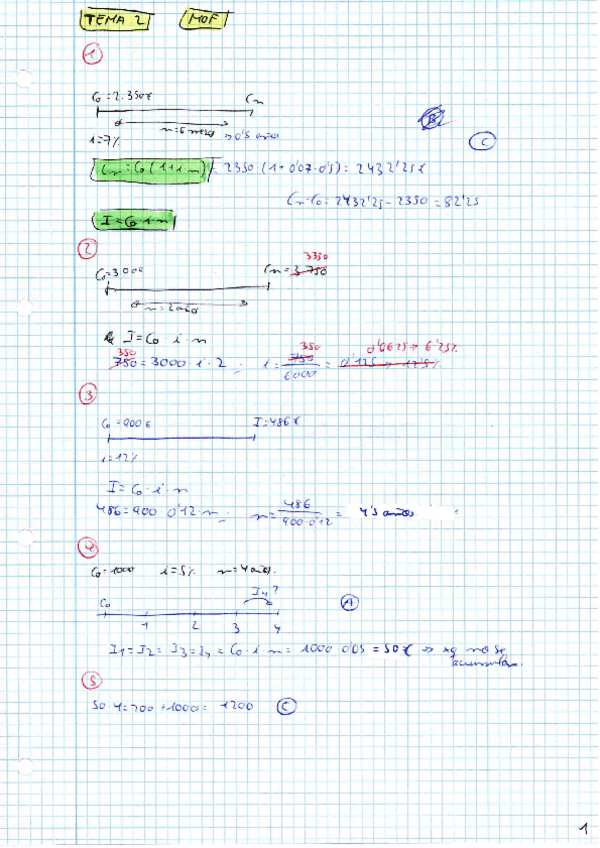 TEMA 2 MOF
1
C₀ = 2.350€ Cn
n = 6 meses ⇒ 0'5 años
i = 7%
C
Cn = C₀ (1 + i·n) = 2350 (1 + 0'07·0'5) = 2432'25€
Cn - C₀ = 2432'25 - 2350 = 82'25
I = C₀·i·n
2
3350
C₀ = 3000 Cn = 3.750
n = 2 años
I = C₀·i·n
350 350 0'0625 ⇒ 6'25%
750 = 3000·i·2 ; i = 750/6000 = 0'125 ⇒ 12'5%
3
C₀ = 900€ I = 486€
i = 12%
I = C₀·i·n
486 = 900·0'12·n ; n = 486/900·0'12 = 4'5 años
4
C₀ = 1000 i = 5% n = 4 años.
I₄?
C₀ A
1 2 3 4
I₁ = I₂ = I₃ = I₄ = C₀·i·n = 1000·0'05 = 50€ ⇒ xq no se
acumulan.
5
50·4 = 200 + 1000 = 1200 C
1